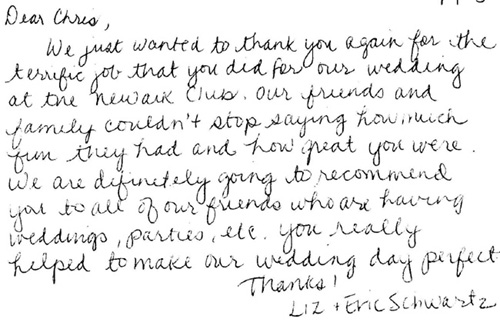 Dear Chris,
We just wanted to thank you again for the
terrific job that you did for our wedding
at the Newark Club. Our friends and
family couldn't stop saying how much
fun they had and how great you were.
We are difinetely going to recommend
you to all of our friends who are having
weddings, parties, etc. you really
helped to make our wedding day perfect
Thanks!
Liz + Eric Schwartz